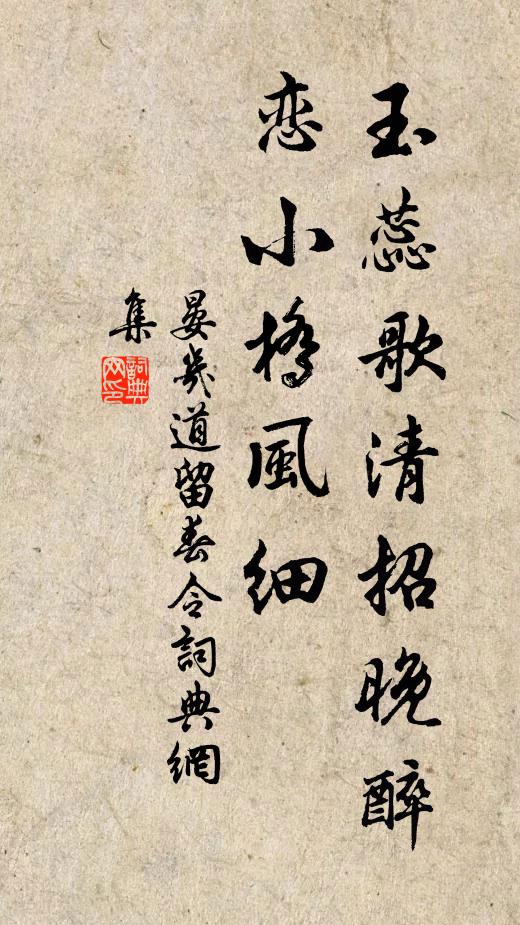 玉蕊歌清招晚醉
恋小桥風细
晏幾道留春令詞典網
集
詞典
网印